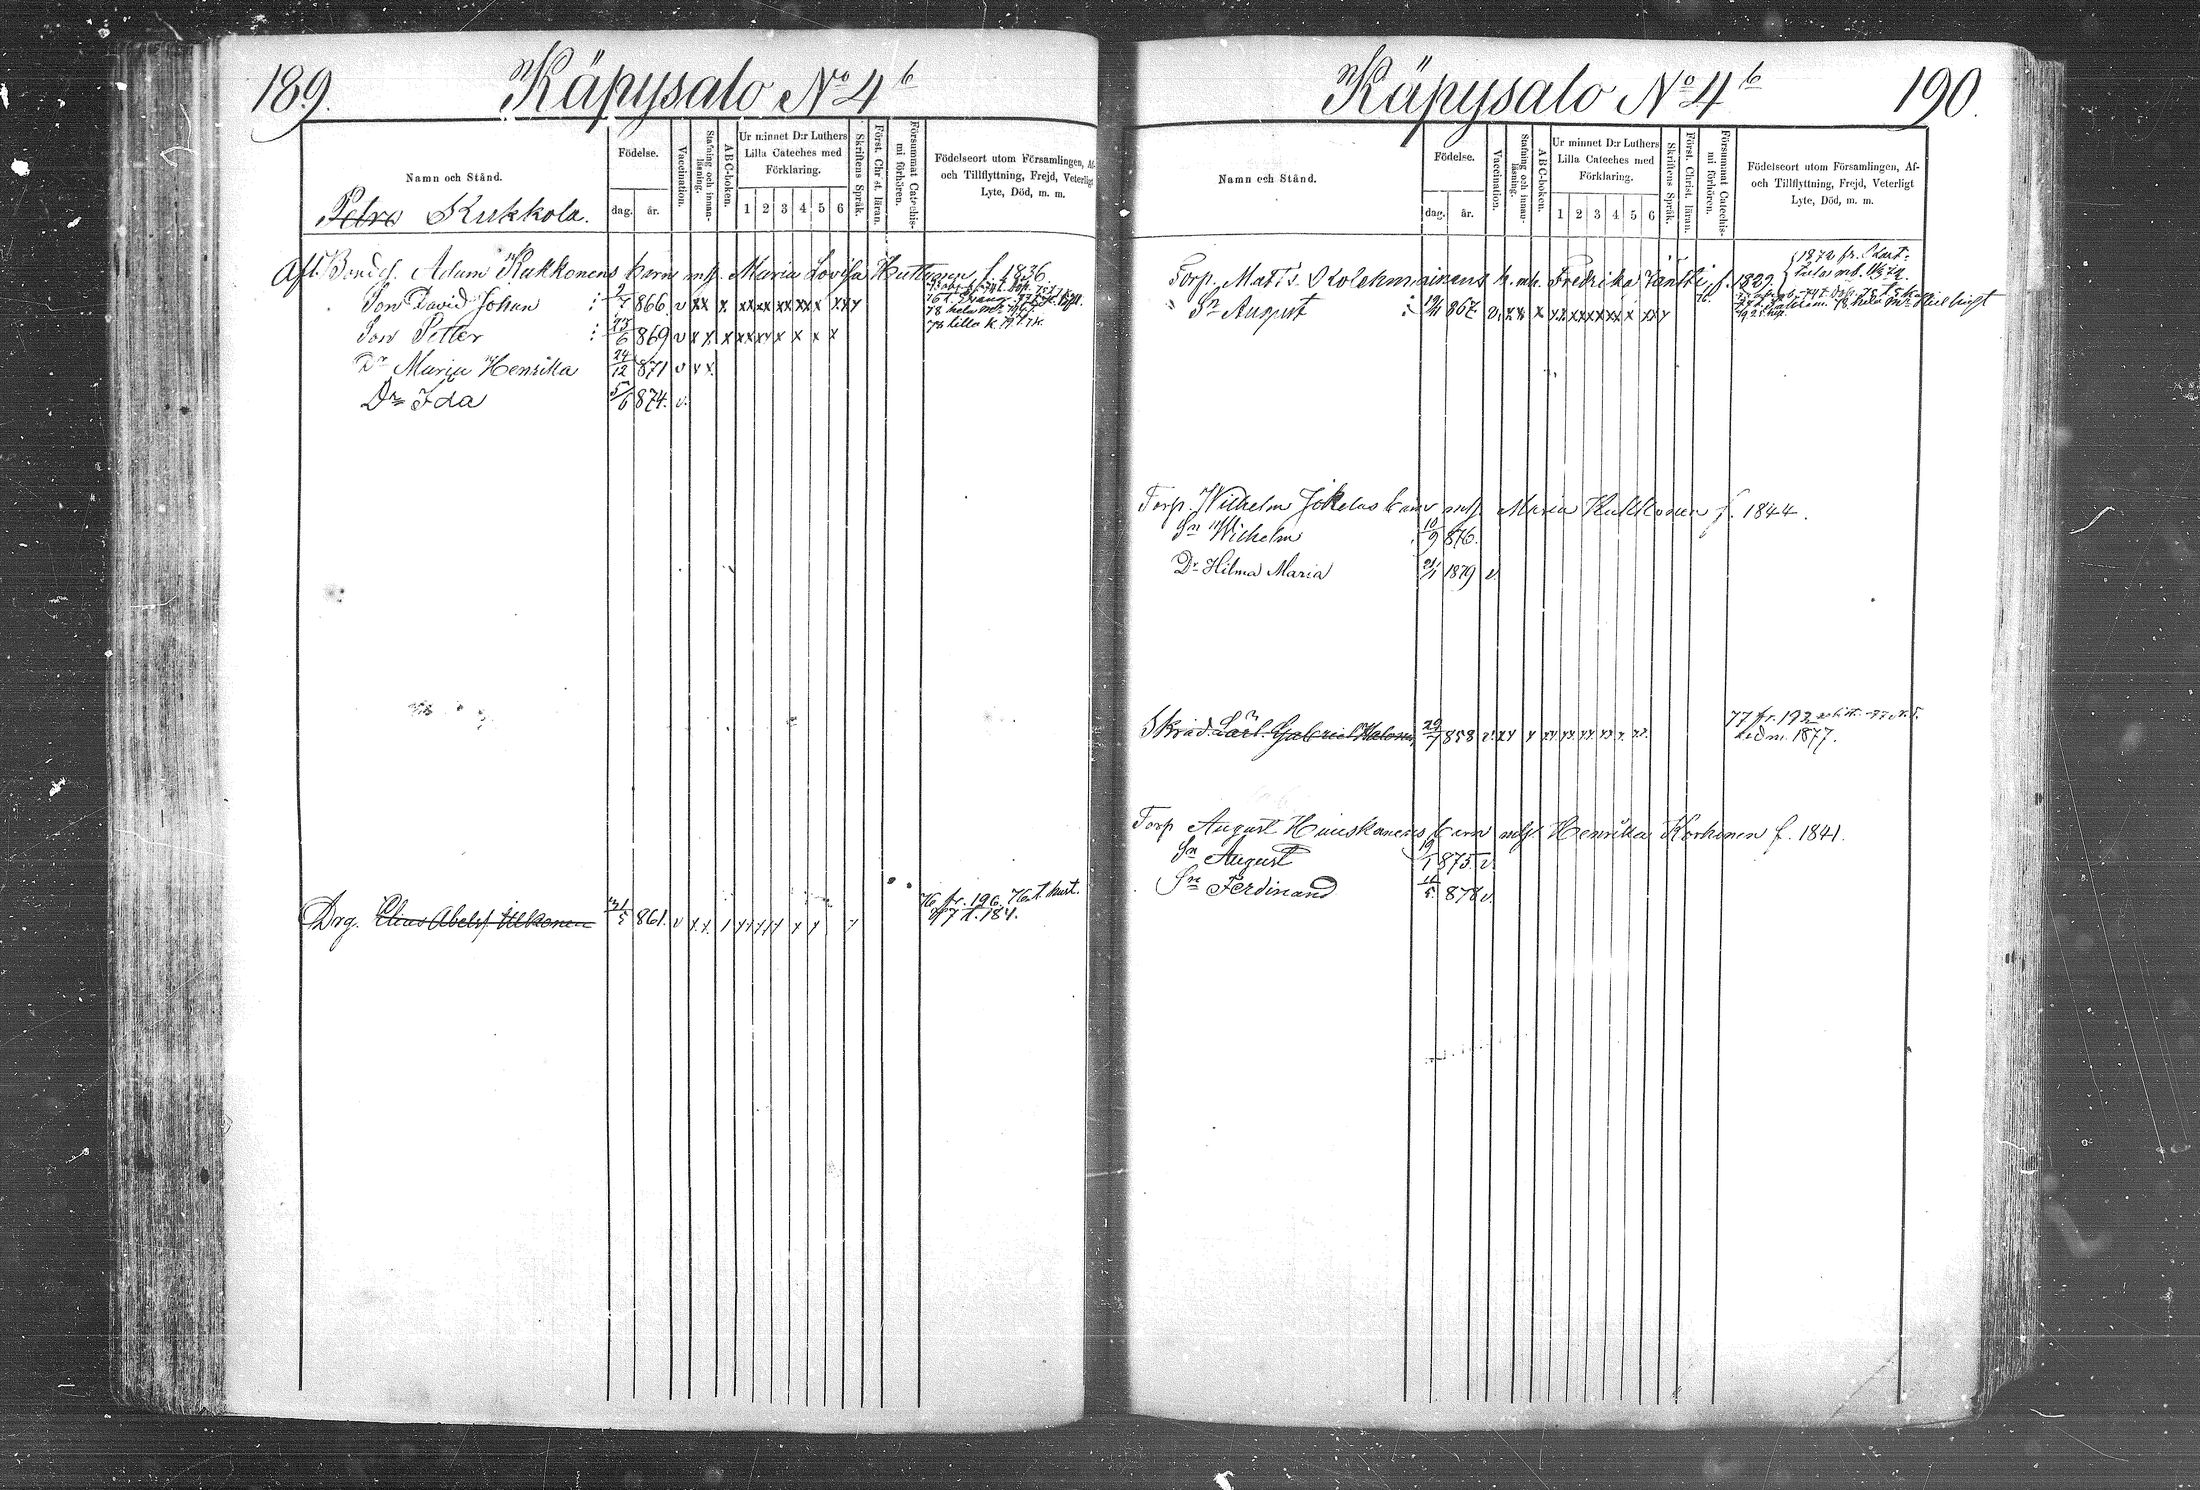 189.
Käpysalo No 4 b
Namn och Stånd.
Födelse.
dag.
år.
Vaccination.
Stafning och innan-
läsning.
ABC-boken.
Ur minnet D:r Luthers
Lilla Cateches med
Förklaring.
1 2 3 4 5 6
Skriftens Språk.
Först. Christ. läran.
Försummat Catechis-
mi förhören.
Födelseort utom Församlingen, Af-
och Tillflyttning, Frejd, Veterligt
Lyte, Död, m. m.
Petro Kukkola.
Afl. Bonde f. Adam Kukkonens barn mg. Maria Lovisa Huttunen f. 1836
Son David Johan 2/7 866 v xx x xx xx xx xx x xx y
Son Petter 23/6 869 v x x x xx xx x x x x
Dr Maria Henrika 24/12 871 v v x
Dr Ida 5/6 874. v.
Drg. Elias Abelsf. Ukkonen 31/5 861. v
76 fr. 196. 76 t. kust.
77 t. 184.
Käpysalo No 4 b
190.
Namn och Stånd.
Födelse.
dag.
år.
Vaccination.
Stafning och innan-
läsning.
ABC-boken.
Ur minnet D:r Luthers
Lilla Cateches med
Förklaring.
1 2 3 4 5 6
Skriftens Språk.
Först. Christ. läran.
Försummat Catechis-
mi förhören.
Födelseort utom Församlingen, Af-
och Tillflyttning, Frejd, Veterligt
Lyte, Död, m. m.
Torp. Matts Kolehmainens b. mh. Fredrika Jäntti, f. 1829.
1872 fr.
Sn August 867. v. xx x xx xx xx xx x xx y
Torp. Wilhelm Jokelas barn mg. Maria Kukkonen f. 1844.
Sn Wilhelm 10/9 876.
Dr Hilma Maria 21/1 1879 v.
Skräd. Lärl. Gabriel Halonen 29/7 858 v. xy y
77 fr. 192
1877.
Torp August Huuskonens barn mg. Henrika Korhonen f. 1841.
Sn August 19/1 875. v.
Sn Ferdinand 11/5 878 v.